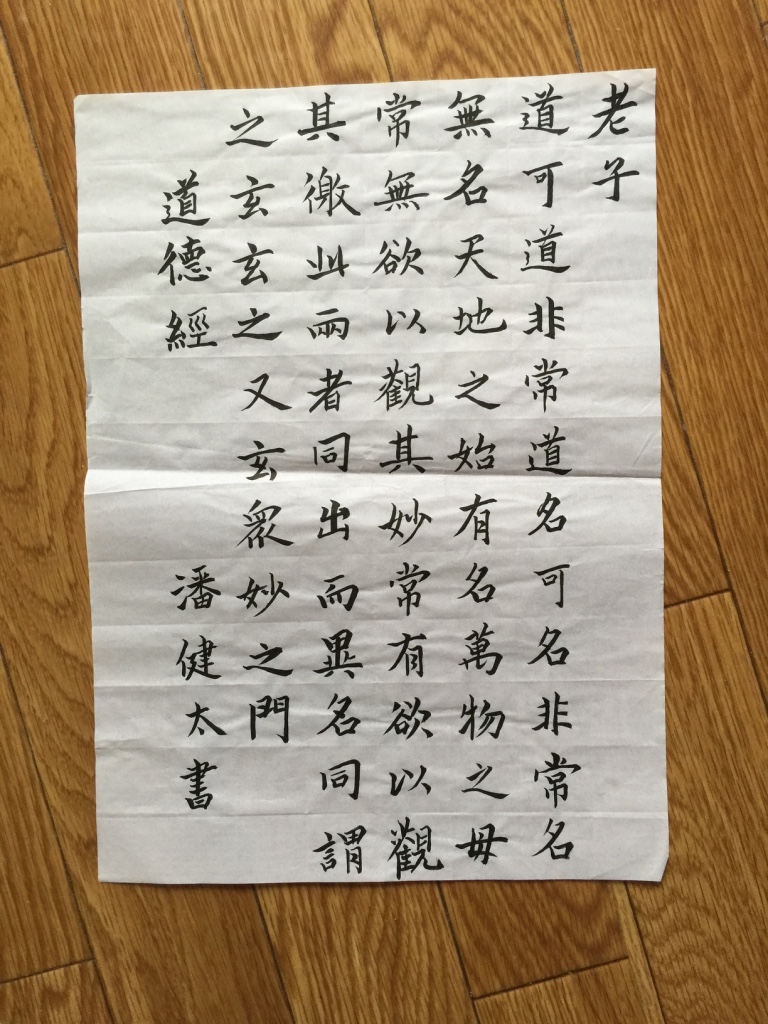 老子
道可道非常道名可名非常名
無名天地之始有名萬物之母
常無欲以觀其妙常有欲以觀
其徼此兩者同出而異名同謂
之玄玄之又玄眾妙之門
道德經
潘健太書